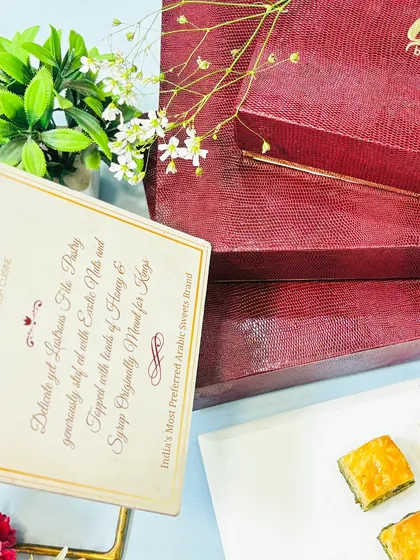 CUISINE
Delicate yet Lustrous Filo Pastry
generously stuffed with Exotic Nuts and
Topped with loads of Honey &
Syrup Originally Meant for Kings
India's Most Preferred Arabic Sweets Brand